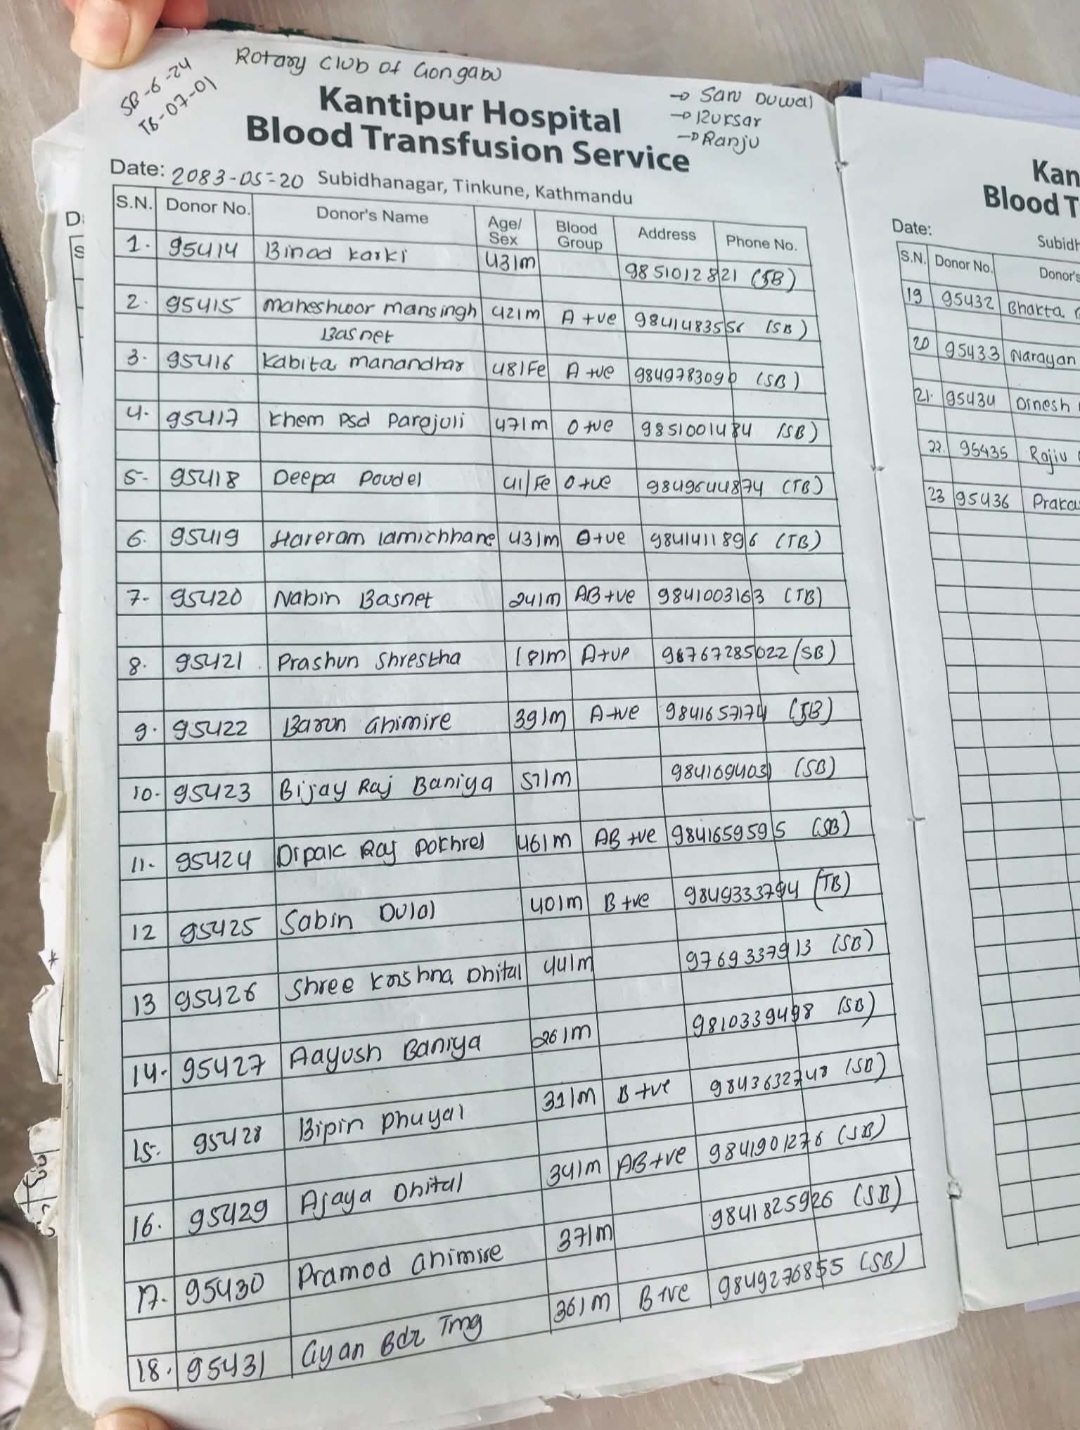 Rotary Club of Gongabu
SB-6-24
TB-07-01
→ Sanu Duwal
→ Kursar
→ Ranju
Kantipur Hospital
Blood Transfusion Service
Date: 2083-05-20 Subidhanagar, Tinkune, Kathmandu
S.N. Donor No. Donor's Name Age/Sex Blood Group Address Phone No.
1. 95414 Binod Karki 43/m 9851012821 (SB)
2. 95415 Maheshwor Mansingh Basnet 42/m A +ve 9841483556 (SB)
3. 95416 Kabita Manandhar 48/Fe A +ve 9849783090 (SB)
4. 95417 Khem Psd Parajuli 47/m O +ve 9851001484 (SB)
5- 95418 Deepa Poudel 41/Fe O +ve 9849644874 (TB)
6. 95419 Hareram lamichhane 43/m O+ve 9841411896 (TB)
7- 95420 Nabin Basnet 24/m AB +ve 9841003163 (TB)
8. 95421 Prashun Shrestha 18/m A+ve 98767285022 (SB)
9. 95422 Barun Ghimire 39/m A+ve 9841657174 (SB)
10- 95423 Bijay Raj Baniya 57/m 984169403 (SB)
11- 95424 Dipak Raj Pokhrel 46/m AB +ve 9841659595 (SB)
12 95425 Sabin Dulal 40/m B +ve 9849333794 (TB)
13 95426 Shree Krishna Dhital 44/m 9769337913 (SB)
14- 95427 Aayush Baniya 26/m 9810339498 (SB)
15. 95428 Bipin Phuyal 31/m B +ve 9843632748 (SB)
16. 95429 Ajaya Dhital 34/m AB+ve 9841901276 (SB)
17. 95430 Pramod Ghimire 37/m 9841825926 (SB)
18. 95431 Gyan Bdr Tmg 36/m B+ve 9849276855 (SB)
Kan
Blood T
Date: Subidh
S.N. Donor No. Donor's
19 95432 Bhakta
20 95433 Narayan
21. 95434 Dinesh
22. 95435 Rajiv
23 95436 Praka